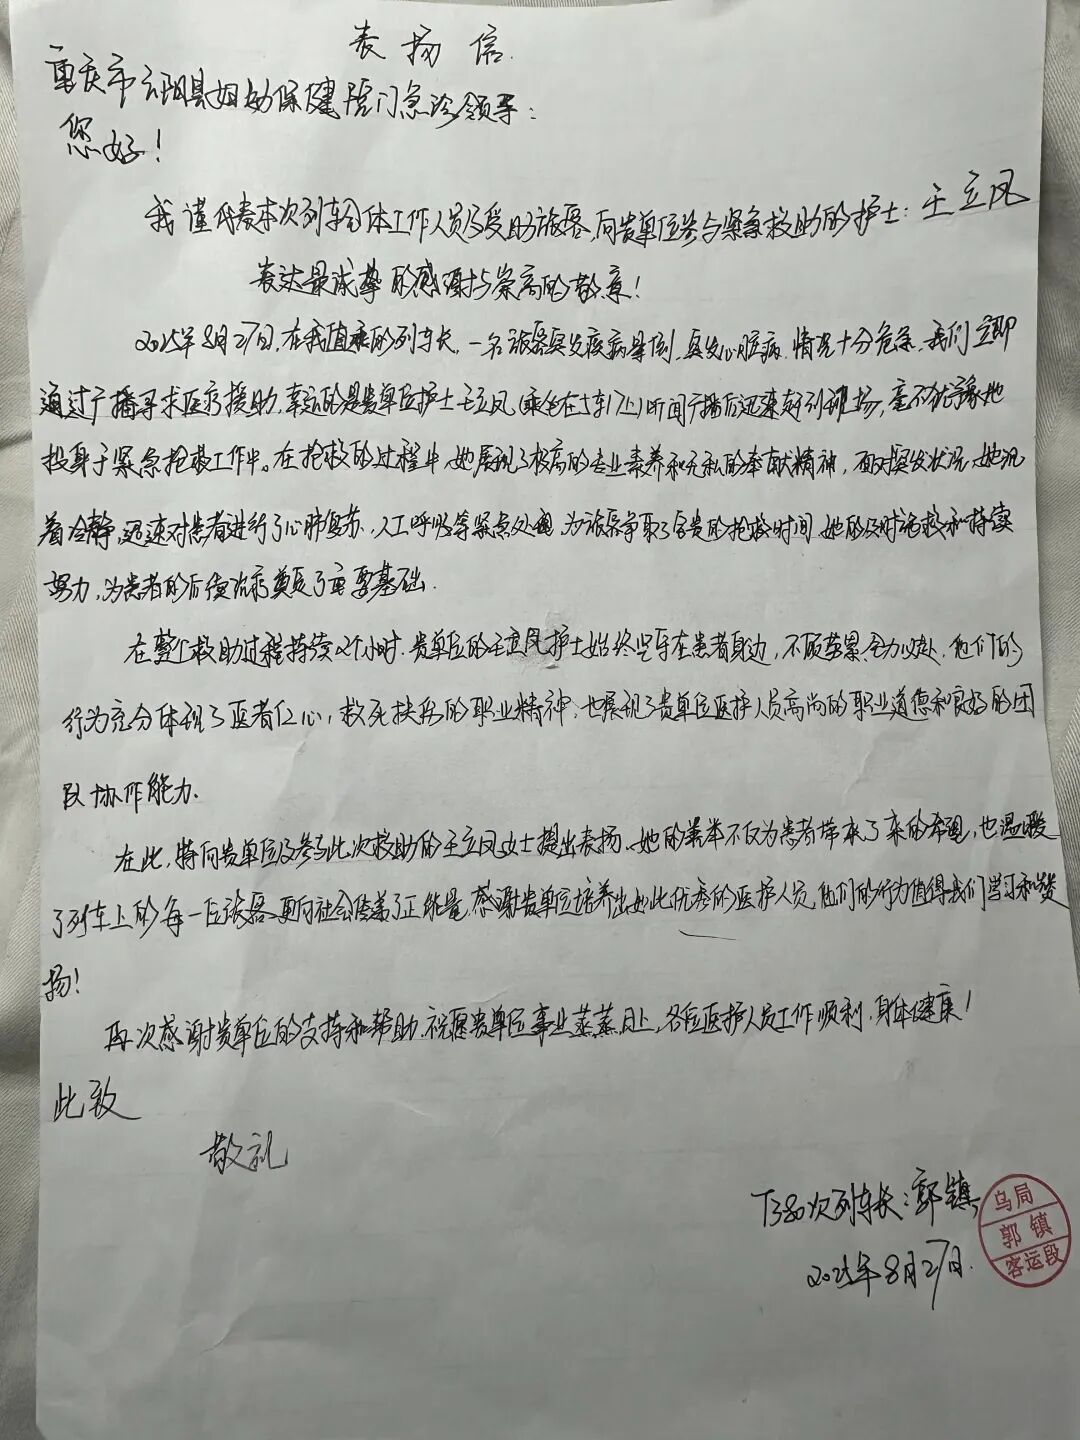 表扬信
重庆市云阳县妇幼保健院门急诊领导：
您好！
我谨代表本次列车全体工作人员及受助旅客，向贵单位参与紧急救助的护士：王立凤
表达最诚挚的感谢与崇高的敬意！
2025年8月27日，在我值乘的列车长，一名旅客突发疾病晕倒，突发心脏病，情况十分危急，我们立即
通过广播寻求医疗援助，幸运的是贵单位护士王立凤（乘坐在5车17上）听闻广播后迅速赶到现场，毫不犹豫地
投身于紧急抢救工作中。在抢救的过程中，她展现了极高的专业素养和无私的奉献精神，面对突发状况，她沉
着冷静，迅速对患者进行了心肺复苏、人工呼吸等紧急处理，为旅客争取了宝贵的抢救时间，她的及时施救和持续
努力，为患者的后续治疗奠定了重要基础.
在整个救助过程持续2个小时，贵单位的王立凤护士始终坚守在患者身边，不顾劳累，全力以赴，他们的
行为充分体现了医者仁心，救死扶伤的职业精神，也展现了贵单位医护人员高尚的职业道德和良好的团
队协作能力.
在此，特向贵单位及参与此次救助的王立凤女士提出表扬，她的善举不仅为患者带来了来的希望，也温暖
了列车上的每一位旅客，更向社会传递了正能量，感谢贵单位培养出如此优秀的医护人员，他们的行为值得我们学习和赞
扬！
再次感谢贵单位的支持和帮助，祝愿贵单位事业蒸蒸日上，各位医护人员工作顺利，身体健康！
此致
敬礼
T380次列车长：郭镇
2025年8月27日.
乌局
郭镇
客运段